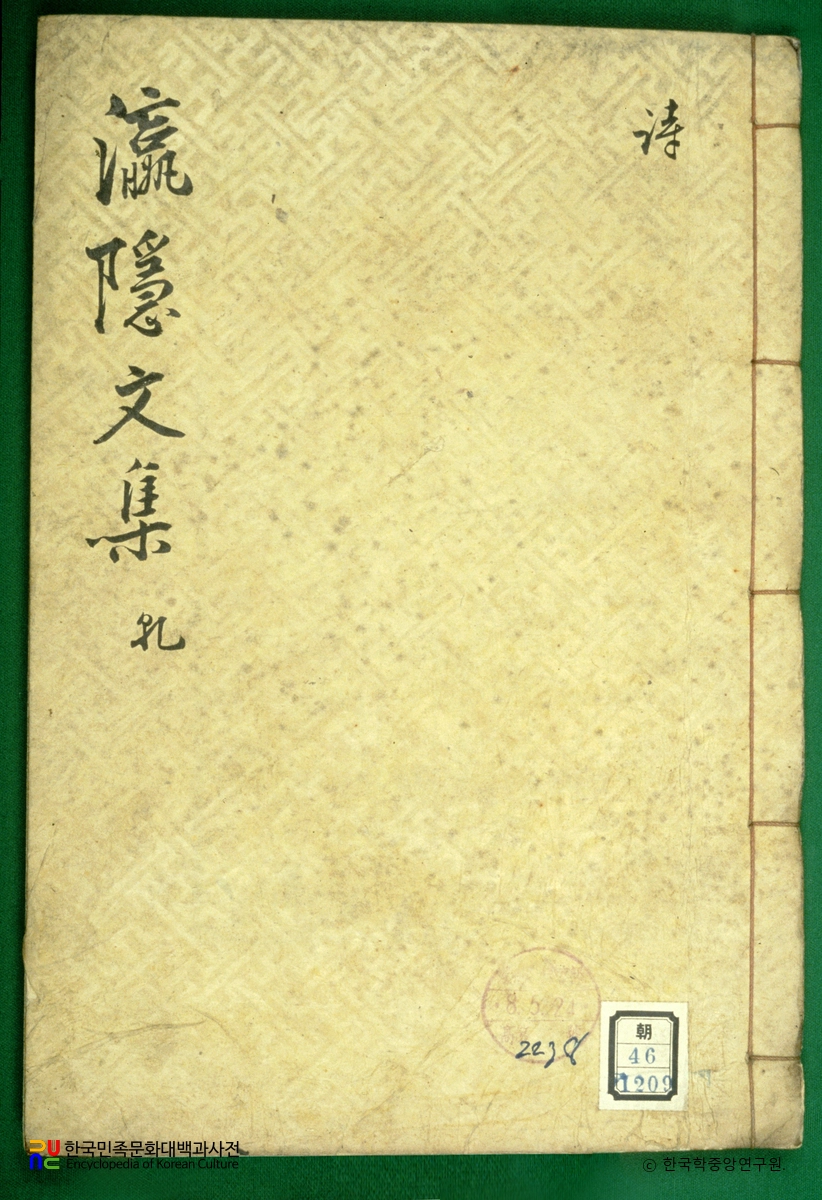 詩
瀛隱文集 乹
2238
朝
46
1209
한국민족문화대백과사전
Encyclopedia of Korean Culture
ⓒ 한국학중앙연구원